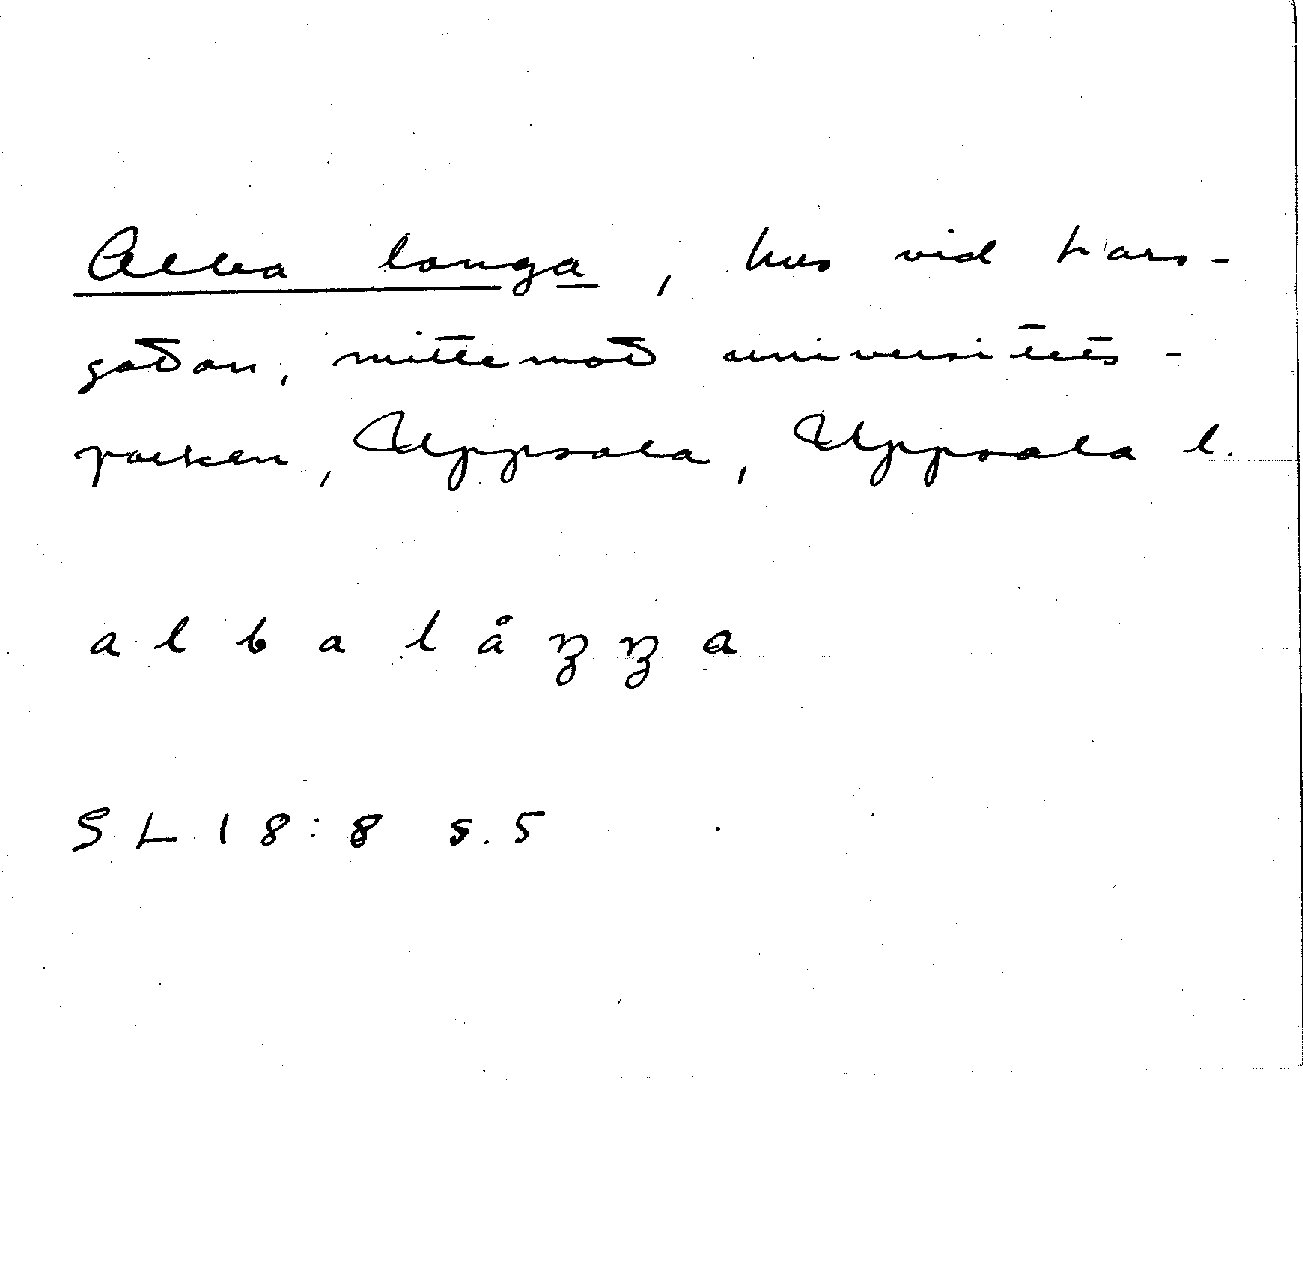 Alba longa, hus vid Lars-
gatan, mittemot universitets-
parken, Uppsala, Uppsala l.
a l b a l å ŋ ŋ a
SL 18:8 s. 5